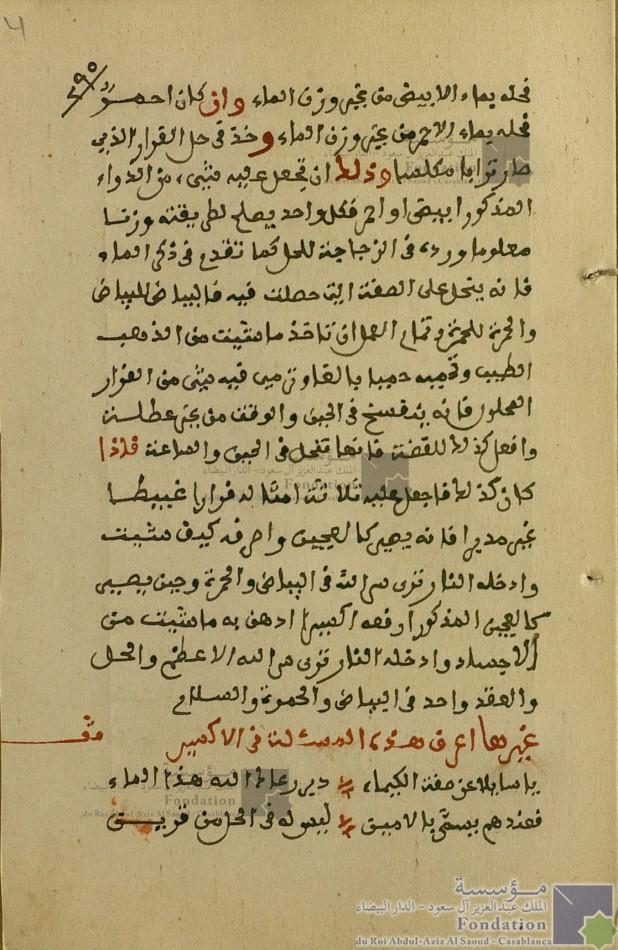 ٤
٢٩٥
فحله بماء الابيض من غير وزن الماء وان كان احمر
فحله بماء الاحمر من غير وزن الماء وخذ في حل الفرار الذي
صار ترابا مكلسا وذلك ان تجعل عليه شيء من الدواء
المذكور ابيض او احمر فكل واحد يصلح لطريقته وزنا
معلوما ورده في الزجاجة للحل كما تقدم في ذكر الماء
فانه ينحل على الصفة التي حصلت فيه فالبياض للبياض
والحمرة للحمرة وتمام العمل ان تاخذ ما شئت من الذهب
الطيب وتحميه حميا بالغا وترمي فيه شيء من الفرار
المحلول فانه يندفسخ في الحين والوقت من غير عطلة
وافعل كذلك للفضة فانها تنحل في الحين والساعة فاذا
كان كذلك فاجعل عليه ثلاثة امثاله فرارا غبيطا
غير مدبر فانه يصير كالعجين واحرقه كيف شئت
وادخله النار ترى سر الله في البياض والحمرة وحين يصير
كالعجين المذكور ارفعه اكسيرا ادهن به ما شئت من
الاجساد وادخله النار ترى سر الله الاعظم والحل
والعقد واحد في البياض والحمرة والسلام
غيرها اعرف هذه المسئلة في الاكسير
يا سايلا عن صفة الكيماء دبر رعاك الله هذا الماء
فعندهم يسمى بالامبق ليس له في الحل من فريق
مؤسسة
الملك عبد العزيز آل سعود - الدار البيضاء
Fondation
du Roi Abdul-Aziz Al Saoud - Casablanca